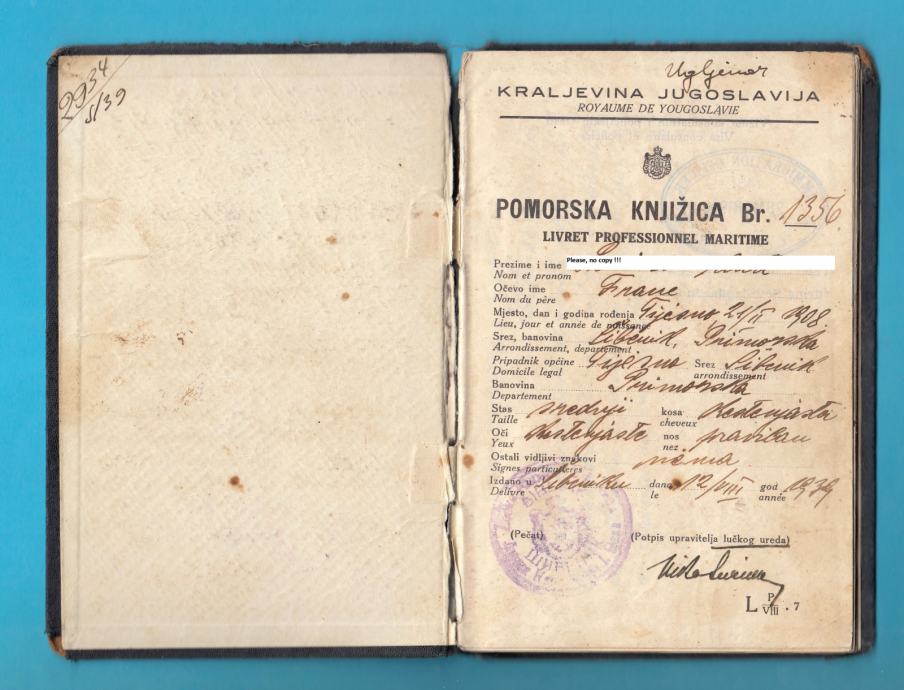 2934
5/39
Ugljenar
KRALJEVINA JUGOSLAVIJA
ROYAUME DE YOUGOSLAVIE
POMORSKA KNJIŽICA Br. 1356
LIVRET PROFESSIONNEL MARITIME
Prezime i ime Please, no copy !!!
Nom et pronom
Očevo ime Frane
Nom du père
Mjesto, dan i godina rođenja 21/II 1908
Lieu, jour et année de naissance
Srez, banovina Šibenik, Primorska
Arrondissement, departement
Pripadnik opčine Srez Šibenik
Domicile legal arrondissement
Banovina Primorska
Departement
Stas srednji kosa kestenjasta
Taille cheveux
Oči kestenjaste nos pravilan
Yeux nez
Ostali vidljivi znakovi nema
Signes particulieres
Izdano u Šibeniku dana 12/VIII god 1939
Délivre le année
(Pečat) (Potpis upravitelja lučkog ureda)
L P/VIII . 7